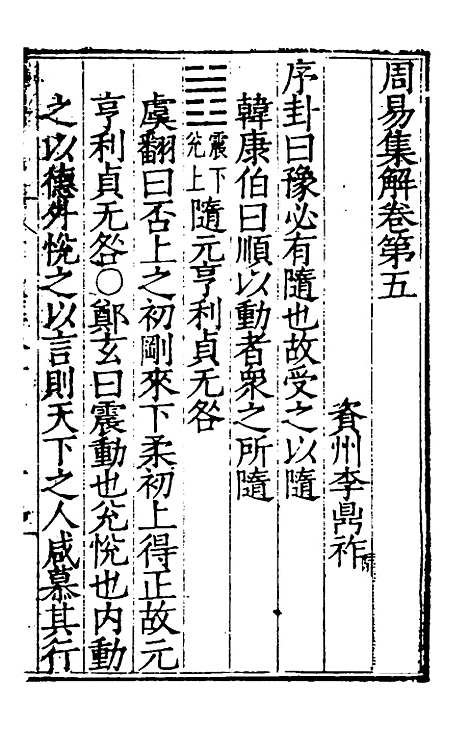 周易集解卷第五
資州李鼎祚
序卦曰豫必有隨也故受之以隨
韓康伯曰順以動者衆之所隨
䷐震下兊上隨元亨利貞无咎
虞翻曰否上之初剛來下柔初上得正故元
亨利貞无咎○鄭玄曰震動也兊悅也内動
之以德外悅之以言則天下之人咸慕其行